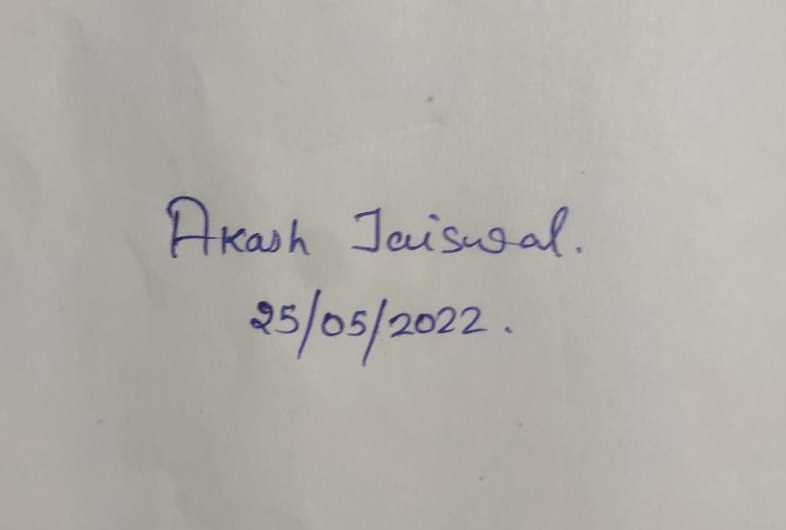 Akash Jaiswal.
25/05/2022.